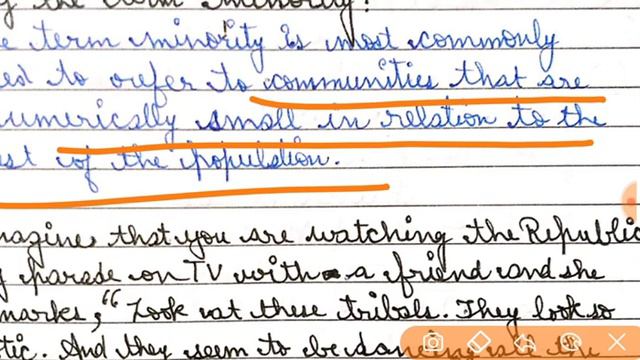 g the term minority?
e term minority is most commonly
ed to refer to communities that are
umerically small in relation to the
st of the population.
magine that you are watching the Republic
y parade on TV with a friend and she
marks, "Look at these tribals. They look so
tic. And they seem to be dancing all the